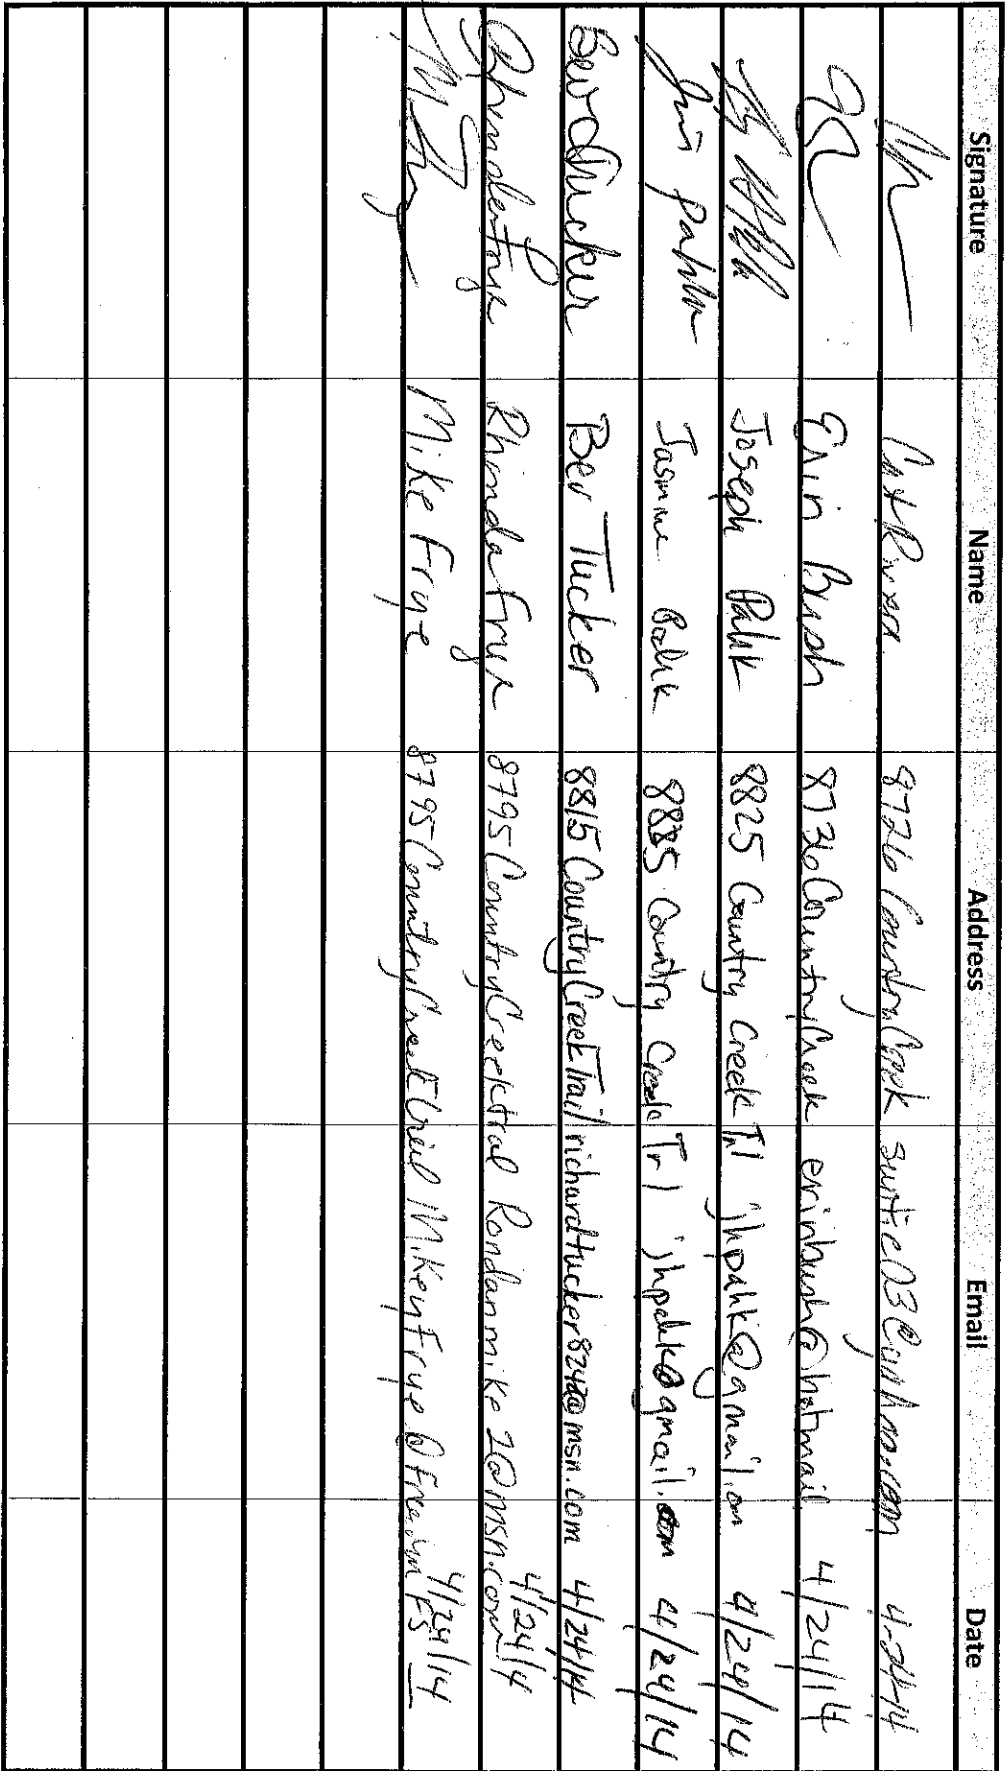 Signature Name Address Email Date
8726 Country Creek 4-24-14
Erin Bush 8736 Country Creek erinbush@hotmail 4/24/14
Joseph Palik 8825 Country Creek Trl jhpalik@gmail.com 4/24/14
Jasmine Palik Country Creek Trl jhpalik@gmail.com 4/24/14
Bev Tucker Bev Tucker 8815 Country Creek Trail richardtucker8242@msn.com 4/24/14
Rhonda Frye 8795 Country Creek Rondanmike2@msn.com 4/24/14
Mike Frye 8795 Country Creek Trail 4/24/14